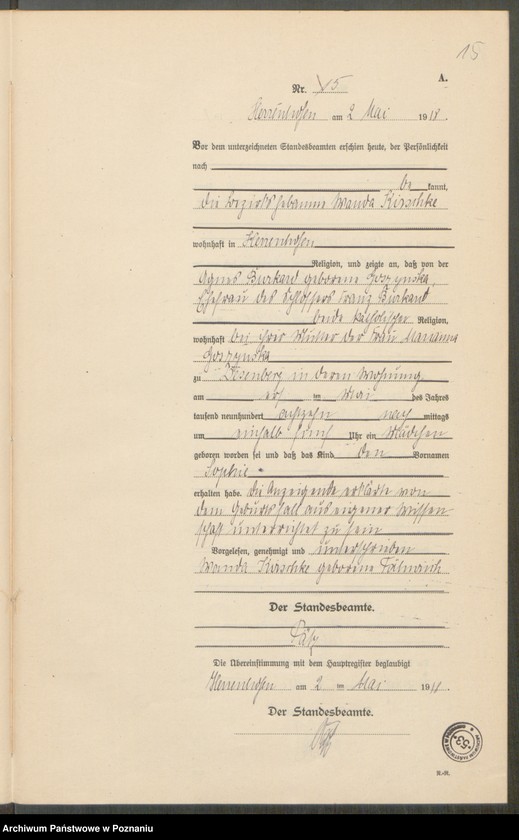 15
A.
Nr. 15
Herrenhofen am 2 Mai 1918.
Vor dem unterzeichneten Standesbeamten erschien heute, der Persönlichkeit
nach
be kannt,
die Bezirkshebamme Wanda Kirschke
wohnhaft in Herrenhofen
Religion, und zeigte an, daß von der
Agnes Burkard geborene
Ehefrau des Schlossers Franz Burkard
beide katholischer Religion,
wohnhaft bei ihrer Mutter der Frau Marianna
zu in deren Wohnung
am im Mai des Jahres
tausend neunhundert achtzehn nach mittags
um einhalb fünf Uhr ein Mädchen
geboren worden sei und daß das Kind den Vornamen
Sophie
erhalten habe. Die Anzeigende erklärte von
dem Geburtsfall aus eigener Wissen-
schaft unterrichtet zu sein
Vorgelesen, genehmigt und unterschrieben
Wanda Kirschke geborene
Der Standesbeamte.
Die Übereinstimmung mit dem Hauptregister beglaubigt
Herrenhofen am 2 ten Mai 19
Der Standesbeamte.
53
Archiwum Państwowe w Poznaniu